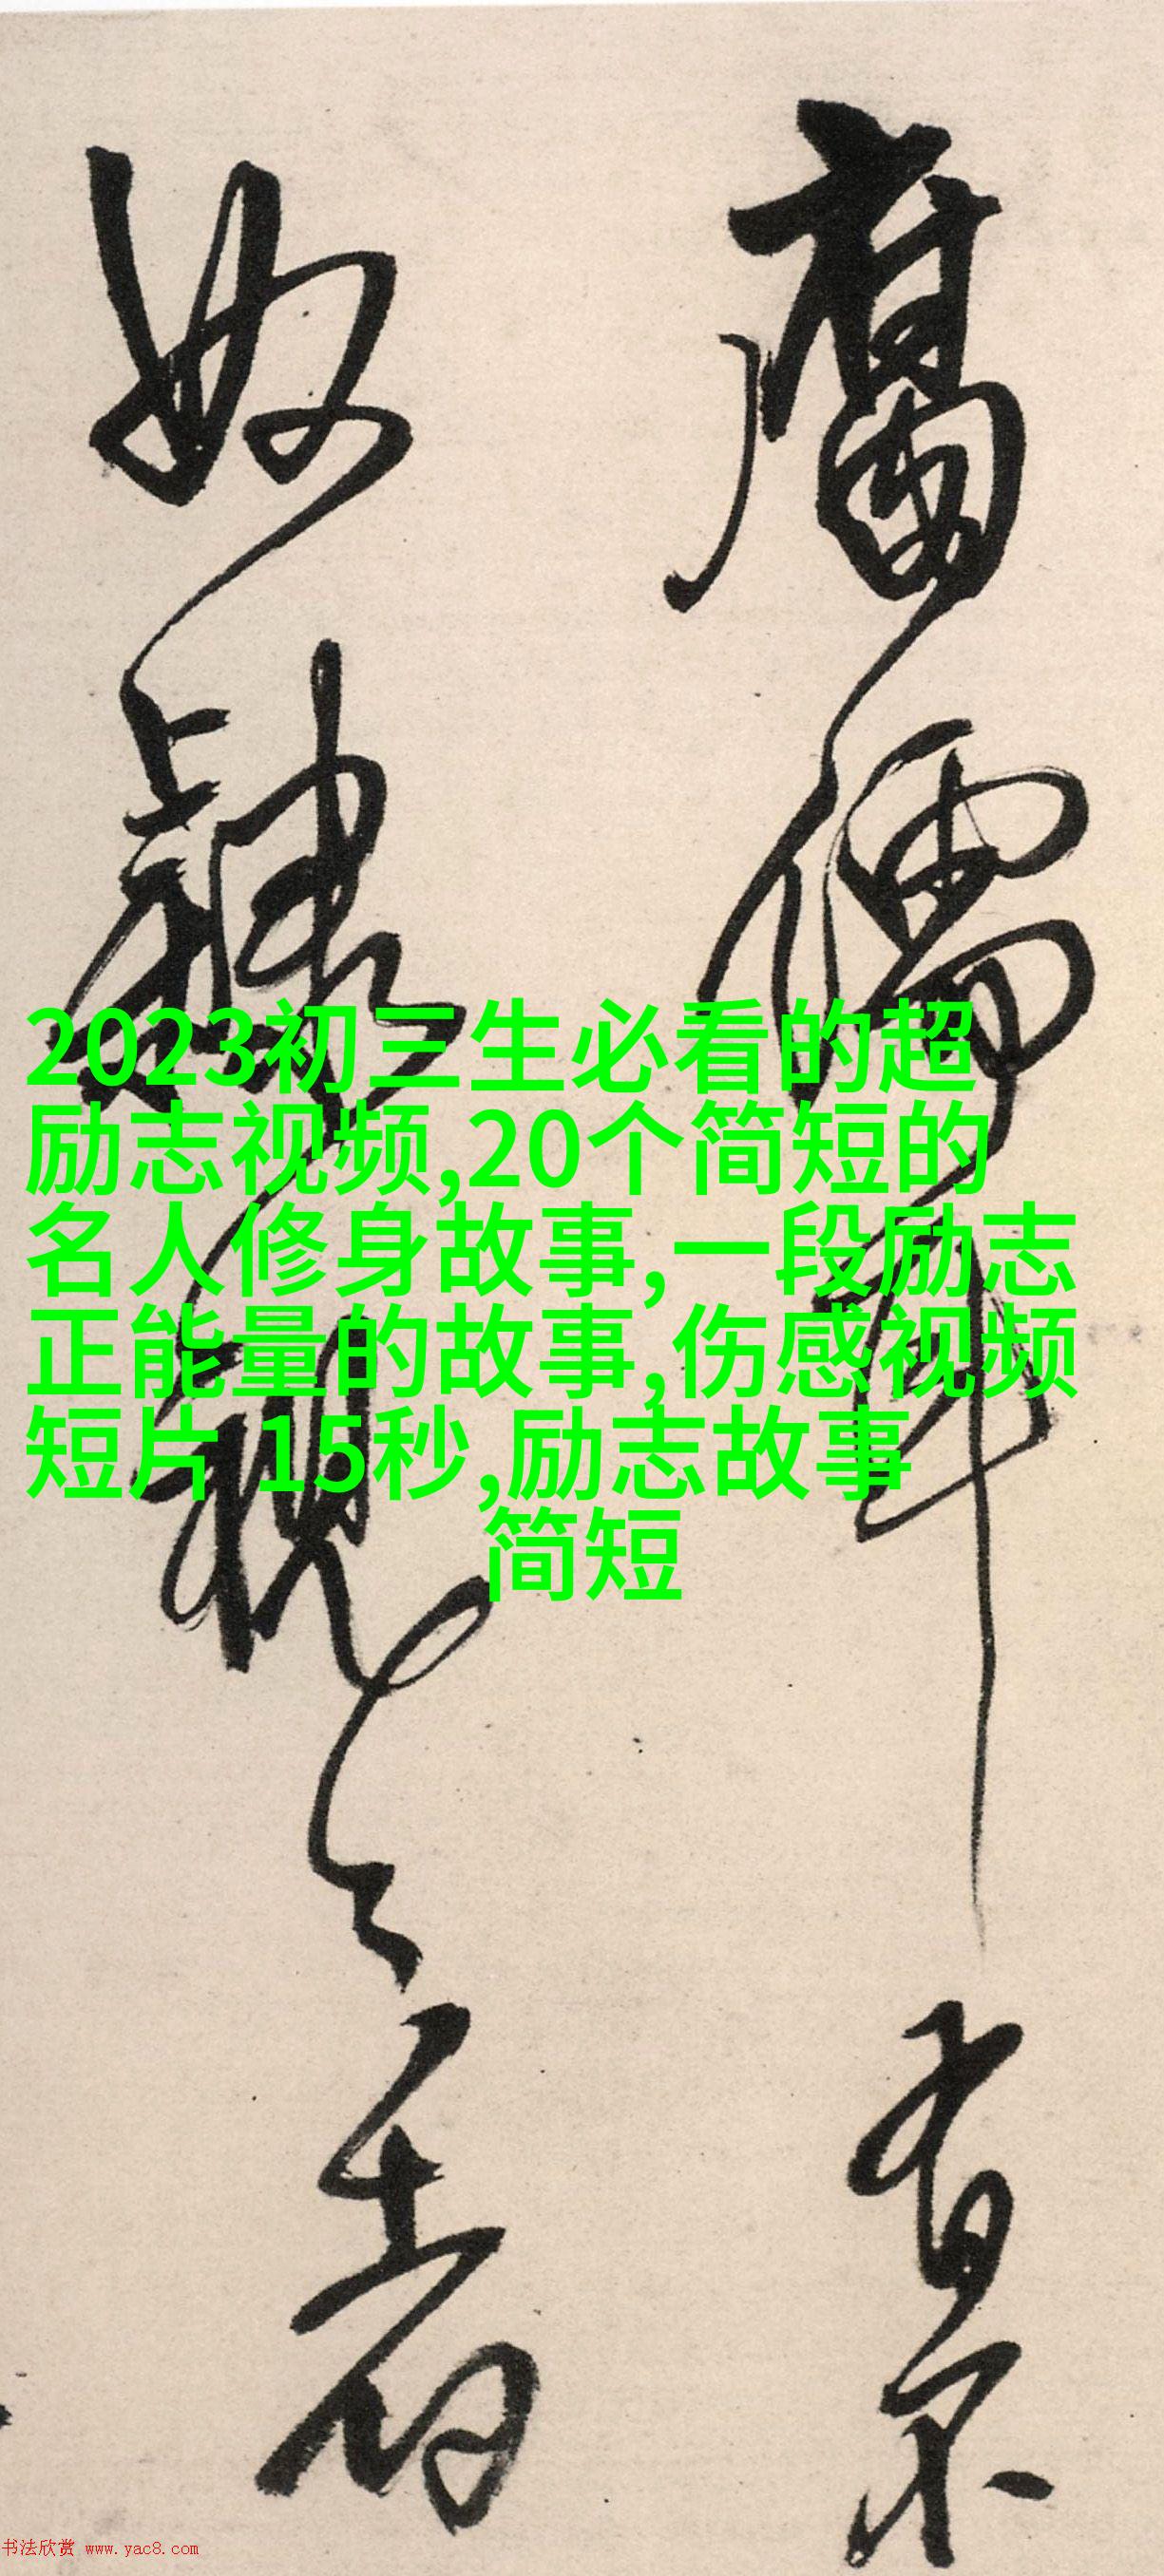 腐儒耳有不
如隸視之者
2023初三生必看的超
励志视频,20个简短的
名人修身故事,一段励志
正能量的故事,伤感视频
短片 15秒,励志故事
简短
书法欣赏 www.yac8.com